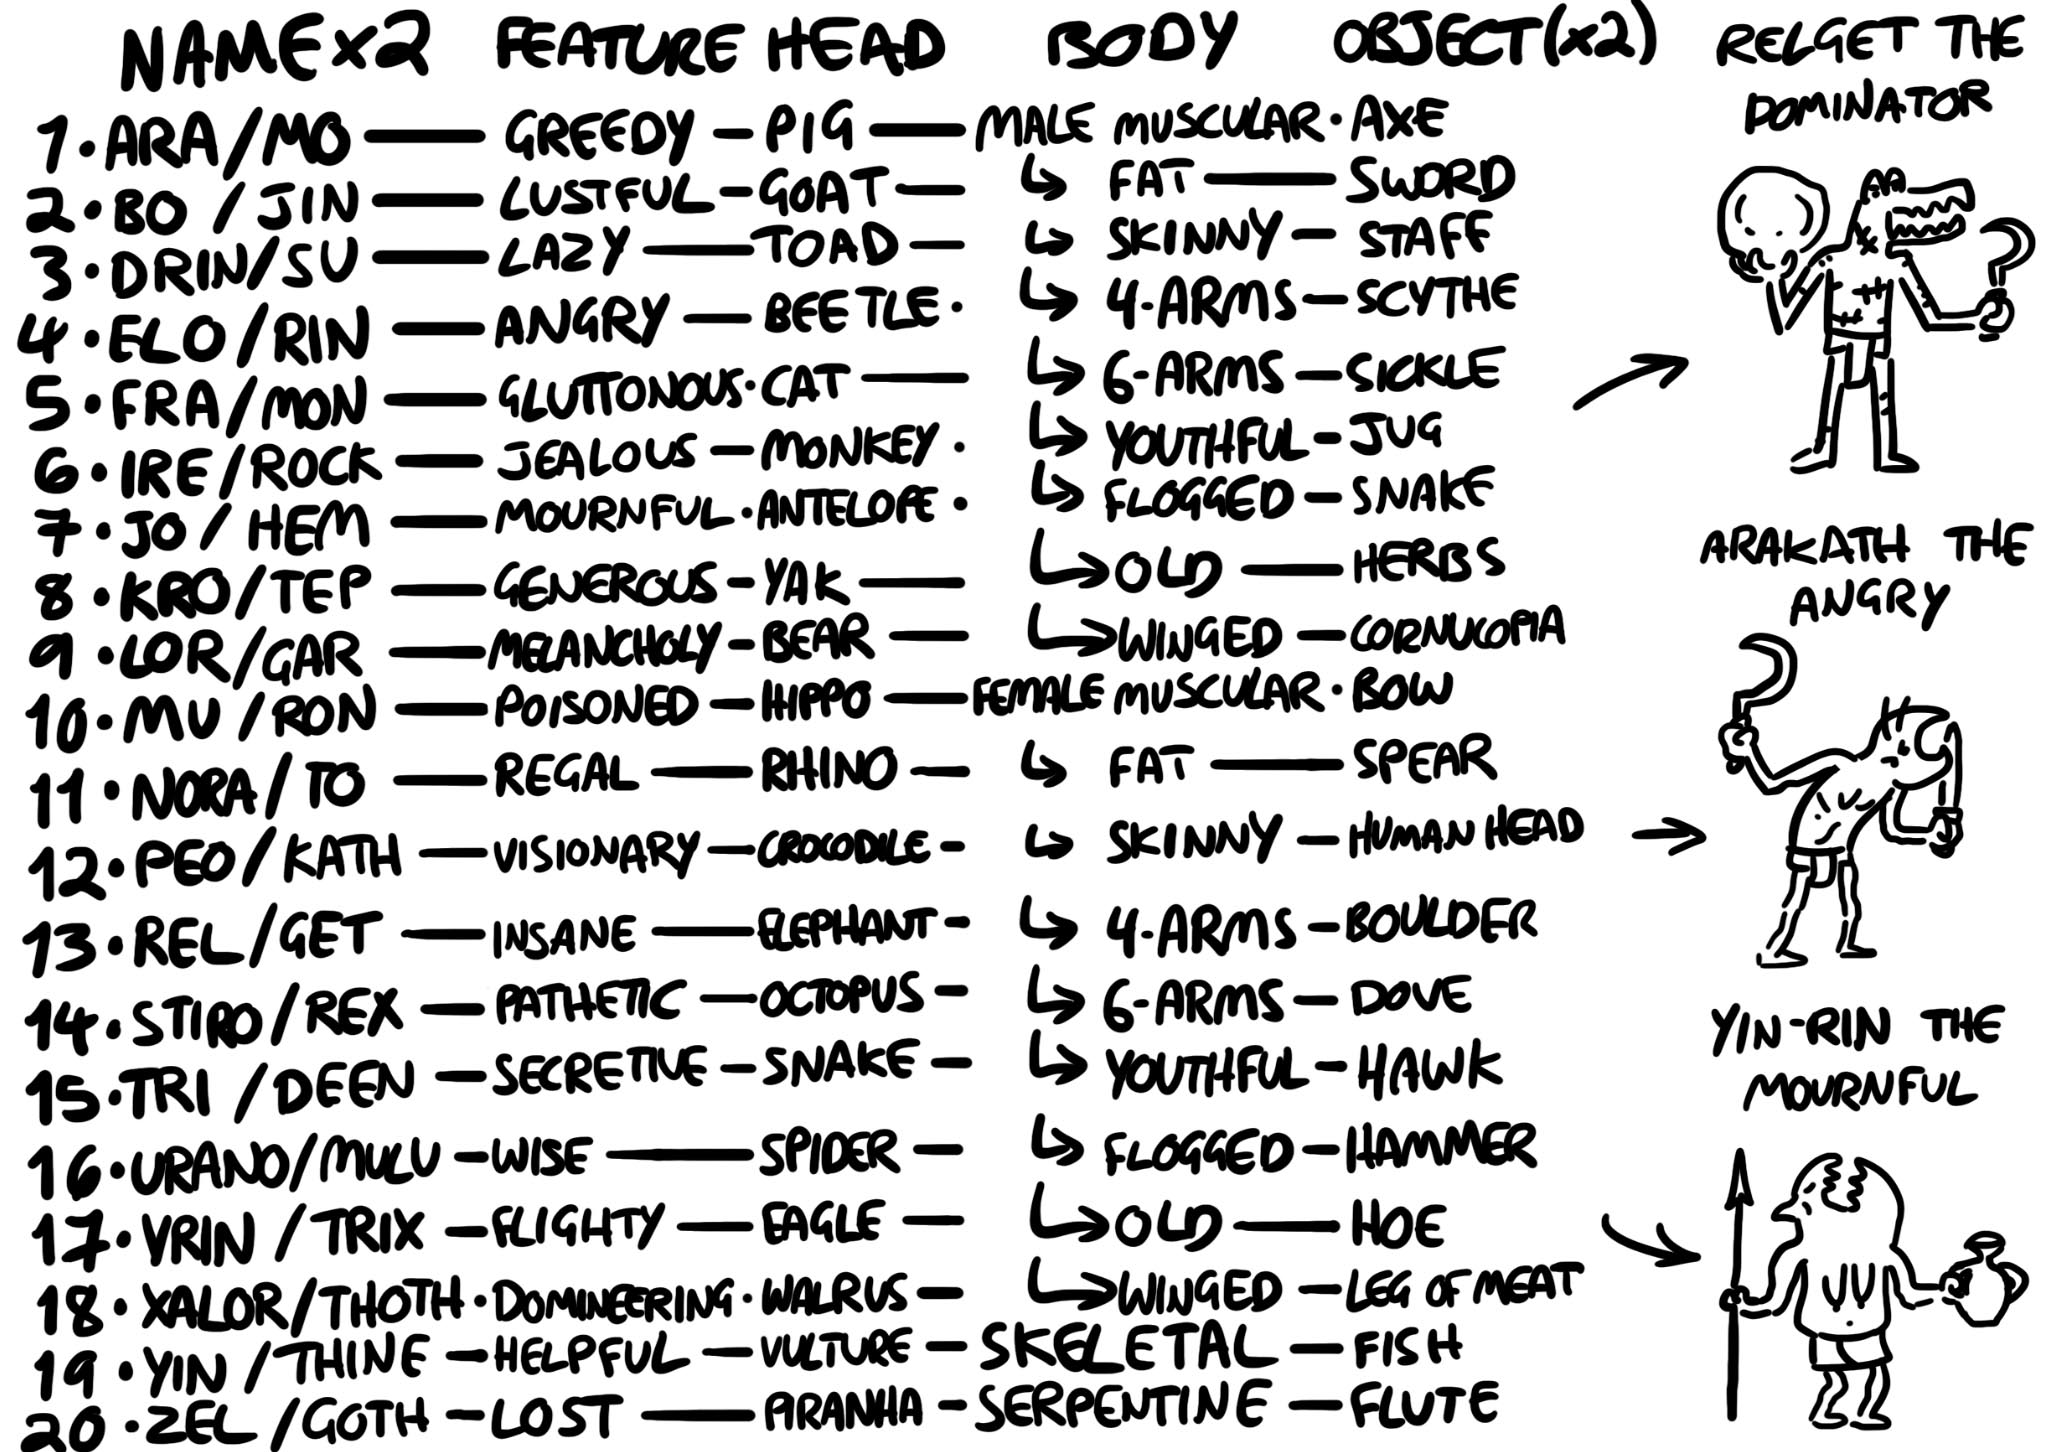 NAME x2 FEATURE HEAD BODY OBJECT (x2)
1. ARA/MO — GREEDY — PIG — MALE MUSCULAR · AXE
2. BO / JIN — LUSTFUL — GOAT — ↳ FAT — SWORD
3. DRIN/SU — LAZY — TOAD — ↳ SKINNY — STAFF
4. ELO/RIN — ANGRY — BEETLE · ↳ 4-ARMS — SCYTHE
5. FRA/MON — GLUTTONOUS · CAT — ↳ 6-ARMS — SICKLE
6. IRE/ROCK — JEALOUS — MONKEY · ↳ YOUTHFUL — JUG
7. JO / HEM — MOURNFUL · ANTELOPE · ↳ FLOGGED — SNAKE
8. KRO/TEP — GENEROUS — YAK — ↳ OLD — HERBS
9. LOR/GAR — MELANCHOLY — BEAR — ↳ WINGED — CORNUCOPIA
10. MU / RON — POISONED — HIPPO — FEMALE MUSCULAR · BOW
11. NORA/TO — REGAL — RHINO — ↳ FAT — SPEAR
12. PEO/KATH — VISIONARY — CROCODILE — ↳ SKINNY — HUMAN HEAD
13. REL/GET — INSANE — ELEPHANT — ↳ 4-ARMS — BOULDER
14. STIRO/REX — PATHETIC — OCTOPUS — ↳ 6-ARMS — DOVE
15. TRI / DEEN — SECRETIVE — SNAKE — ↳ YOUTHFUL — HAWK
16. URANO/MULU — WISE — SPIDER — ↳ FLOGGED — HAMMER
17. VRIN / TRIX — FLIGHTY — EAGLE — ↳ OLD — HOE
18. XALOR/THOTH · DOMINEERING · WALRUS — ↳ WINGED — LEG OF MEAT
19. YIN / THINE — HELPFUL — VULTURE — SKELETAL — FISH
20. ZEL / GOTH — LOST — PIRANHA — SERPENTINE — FLUTE
RELGET THE
DOMINATOR
ARAKATH THE
ANGRY
YIN-RIN THE
MOURNFUL